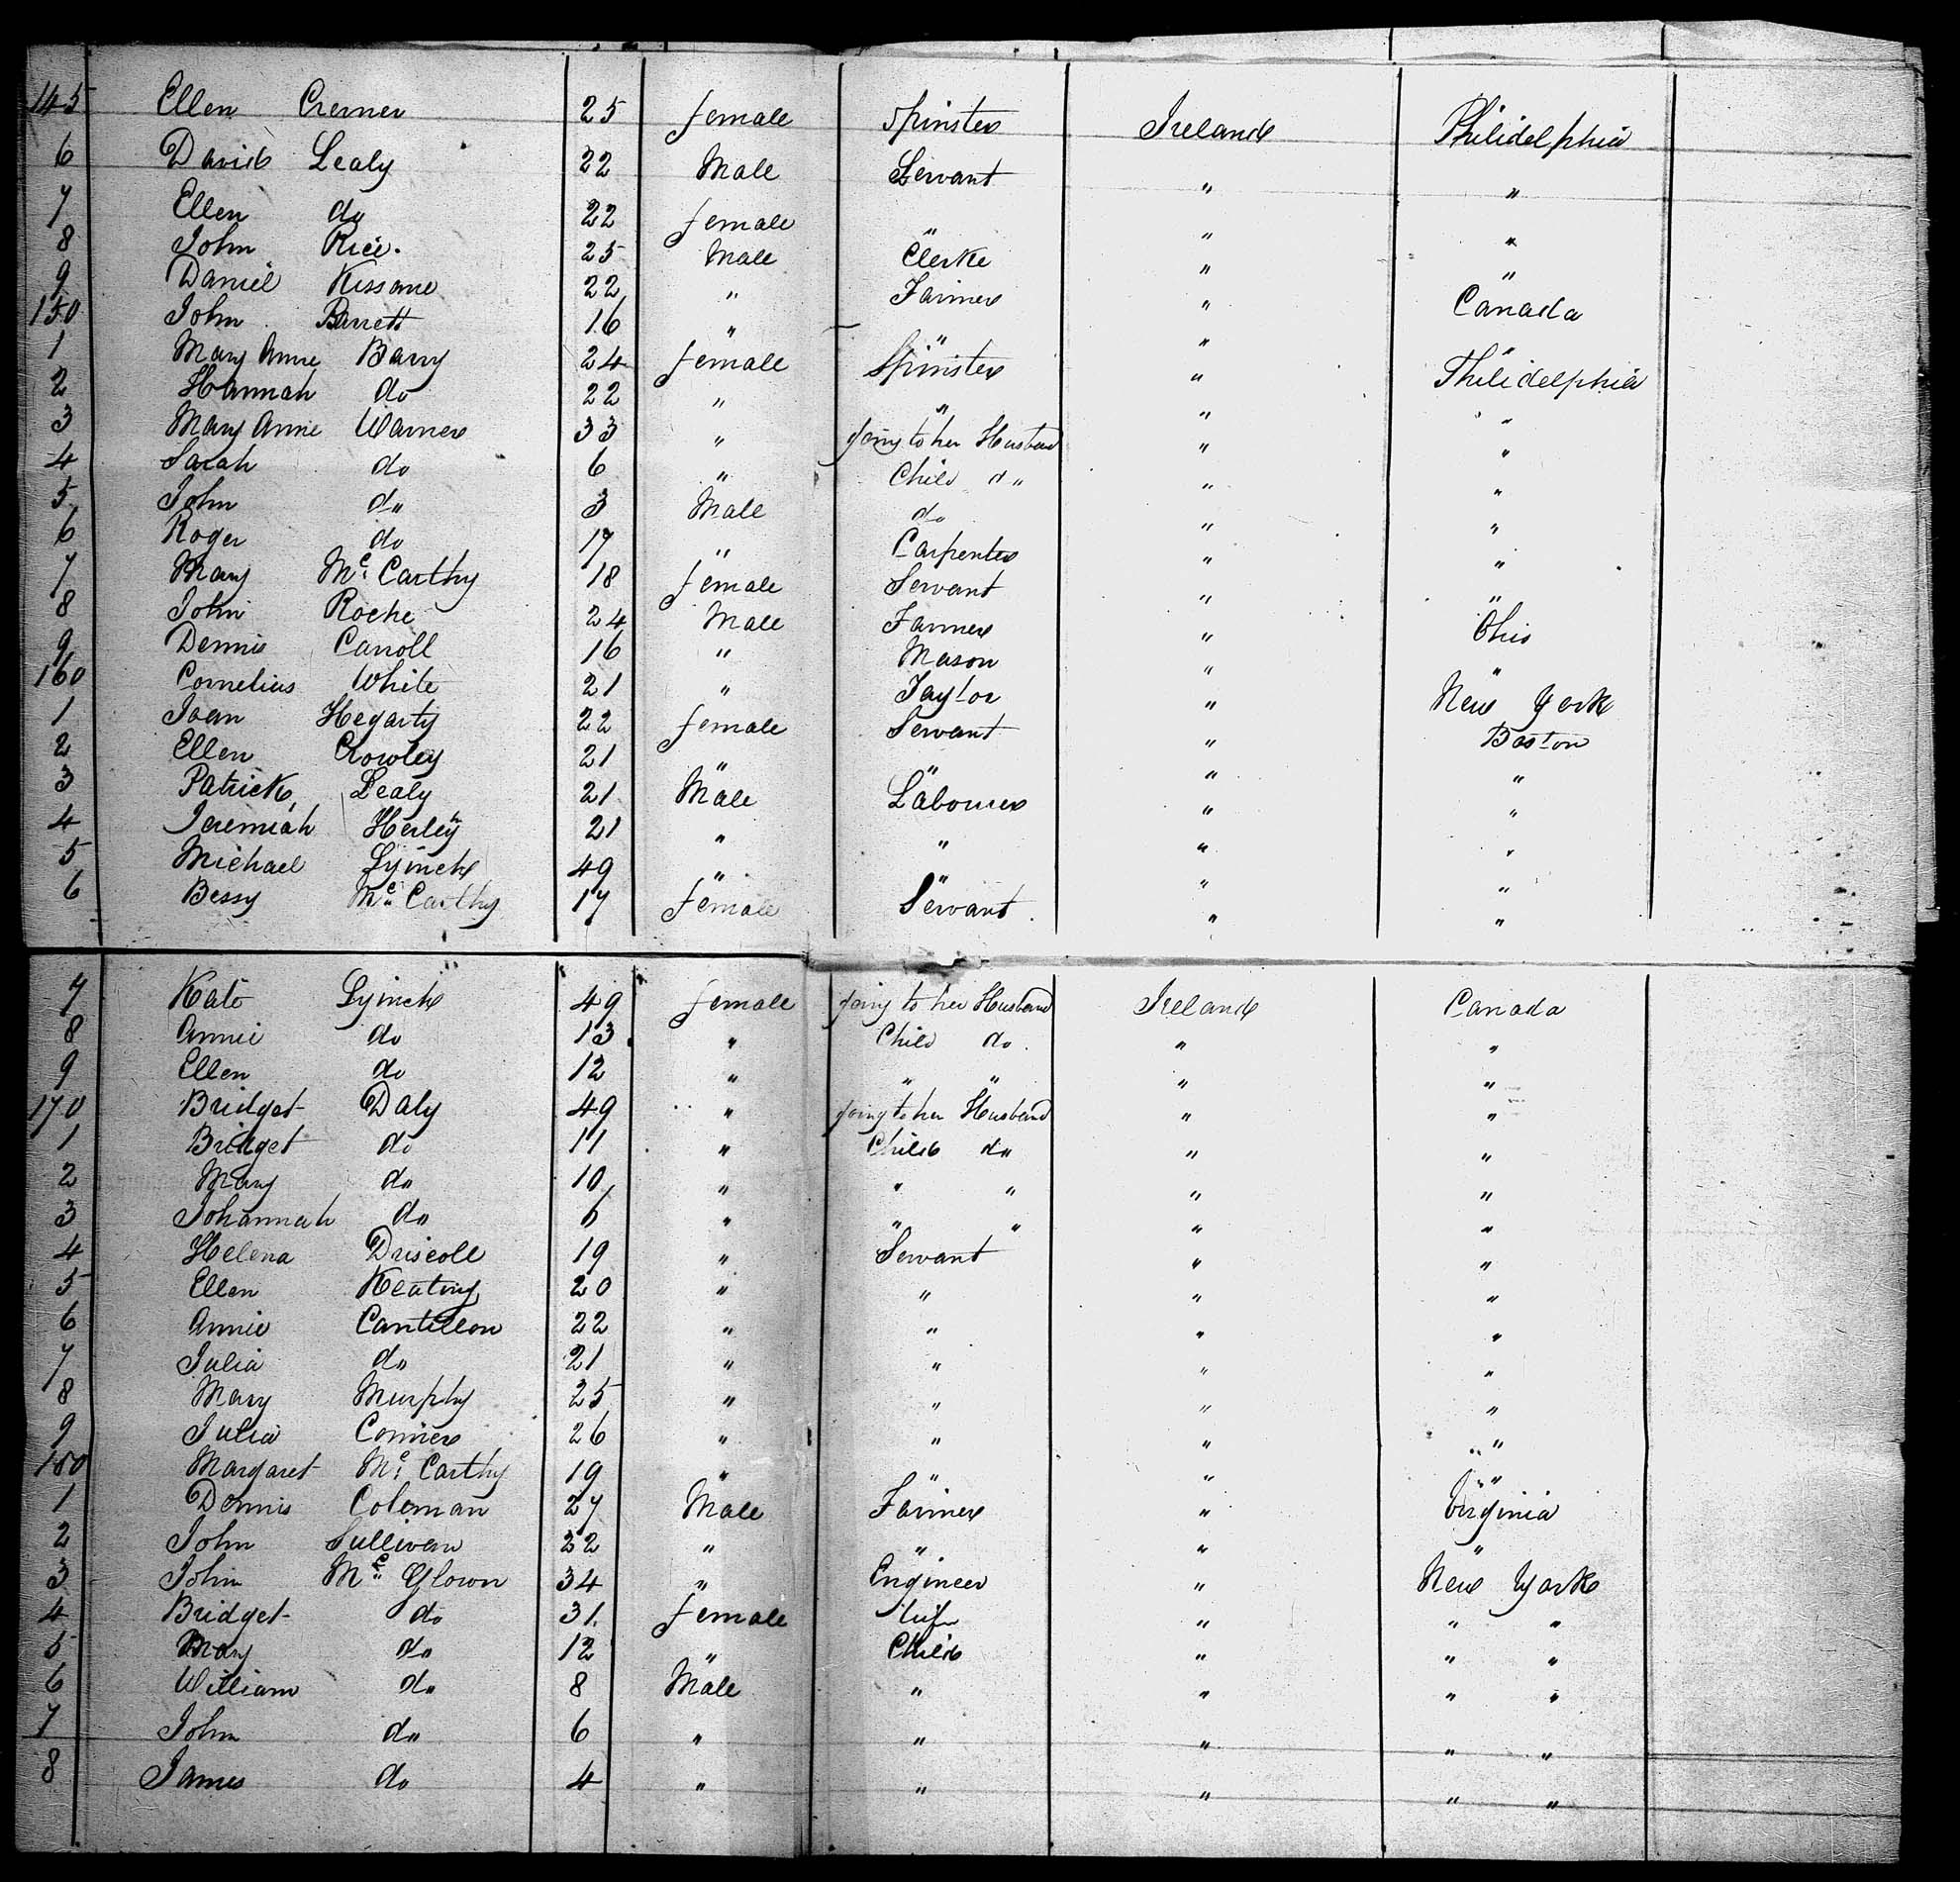 145 Ellen Cremer 25 female Spinster Ireland Philidelphia
6 David Lealy 22 Male Servant " "
7 Ellen do 22 female " " "
8 John Rice. 25 Male Clerke " "
9 Daniel Kissane 22 " Farmer " Canada
150 John Barrett 16 " " " "
1 Mary Anne Barry 24 female Spinster " Philidelphia
2 Hannah do 22 " " " "
3 Mary Anne Warner 33 " going to her Husband " "
4 Sarah do 6 " Child do " "
5 John do 3 Male do " "
6 Roger do 17 " Carpenter " "
7 Mary Mc Carthy 18 female Servant " "
8 John Roche 24 Male Farmer " Ohio
9 Dennis Carroll 16 " Mason " "
160 Cornelius White 21 " Taylor " New York
1 Joan Hegarty 22 female Servant " Boston
2 Ellen Crowley 21 " " " "
3 Patrick Lealy 21 Male Labourer " "
4 Jeremiah Herley 21 " " " "
5 Michael Lynch 49 " " " "
6 Bessy Mc Carthy 17 female Servant " "
7 Kate Lynch 49 female going to her Husband Ireland Canada
8 Annie do 13 " Child do " "
9 Ellen do 12 " " " " "
170 Bridget Daly 49 " going to her Husband " "
1 Bridget do 11 " Child do " "
2 Mary do 10 " " " " "
3 Johannah do 6 " " " " "
4 Helena Driscoll 19 " Servant " "
5 Ellen Keating 20 " " " "
6 Annie Cantillon 22 " " " "
7 Julia do 21 " " " "
8 Mary Murphy 25 " " " "
9 Julia Conner 26 " " " "
180 Margaret Mc Carthy 19 " " " "
1 Dennis Coleman 27 Male Farmer " Virginia
2 John Sullivan 32 " " " "
3 John Mc Glown 34 " Engineer " New York
4 Bridget do 31 female Wife " " "
5 Mary do 12 " Child " " "
6 William do 8 Male " " " "
7 John do 6 " " " " "
8 James do 4 " " " " "